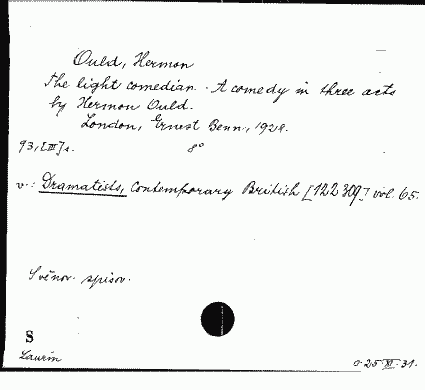 Ould, Hermon
The light comedian. A comedy in three acts
by Hermon Ould.
London, Ernest Benn, 1928.
93, [III] s. 8°
v.: Dramatists, Contemporary British [122309] vol. 65.
Svěnov. spisov.
S
Laurin
0.25.XI.31.